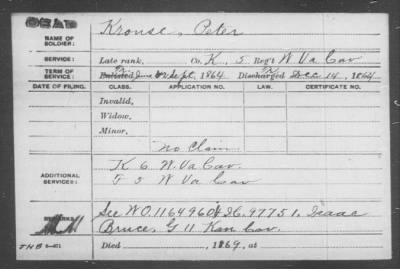 DEAD
NAME OF SOLDIER: Krouse, Peter
SERVICE: Late rank, Co. K, 5 Reg't W Va Cav
TERM OF SERVICE: Enlisted June Sept, 1864 Discharged Dec 14, 1864
DATE OF FILING. CLASS. APPLICATION NO. LAW. CERTIFICATE NO.
Invalid,
Widow,
Minor,
No Claim
ADDITIONAL SERVICES: K 6 W. Va Cav.
F 5 W Va Cav
REMARKS: See W.O. 1164960 & 97751, Isaac
Bruce, G 11 Kan Cav.
Died , 1869, at